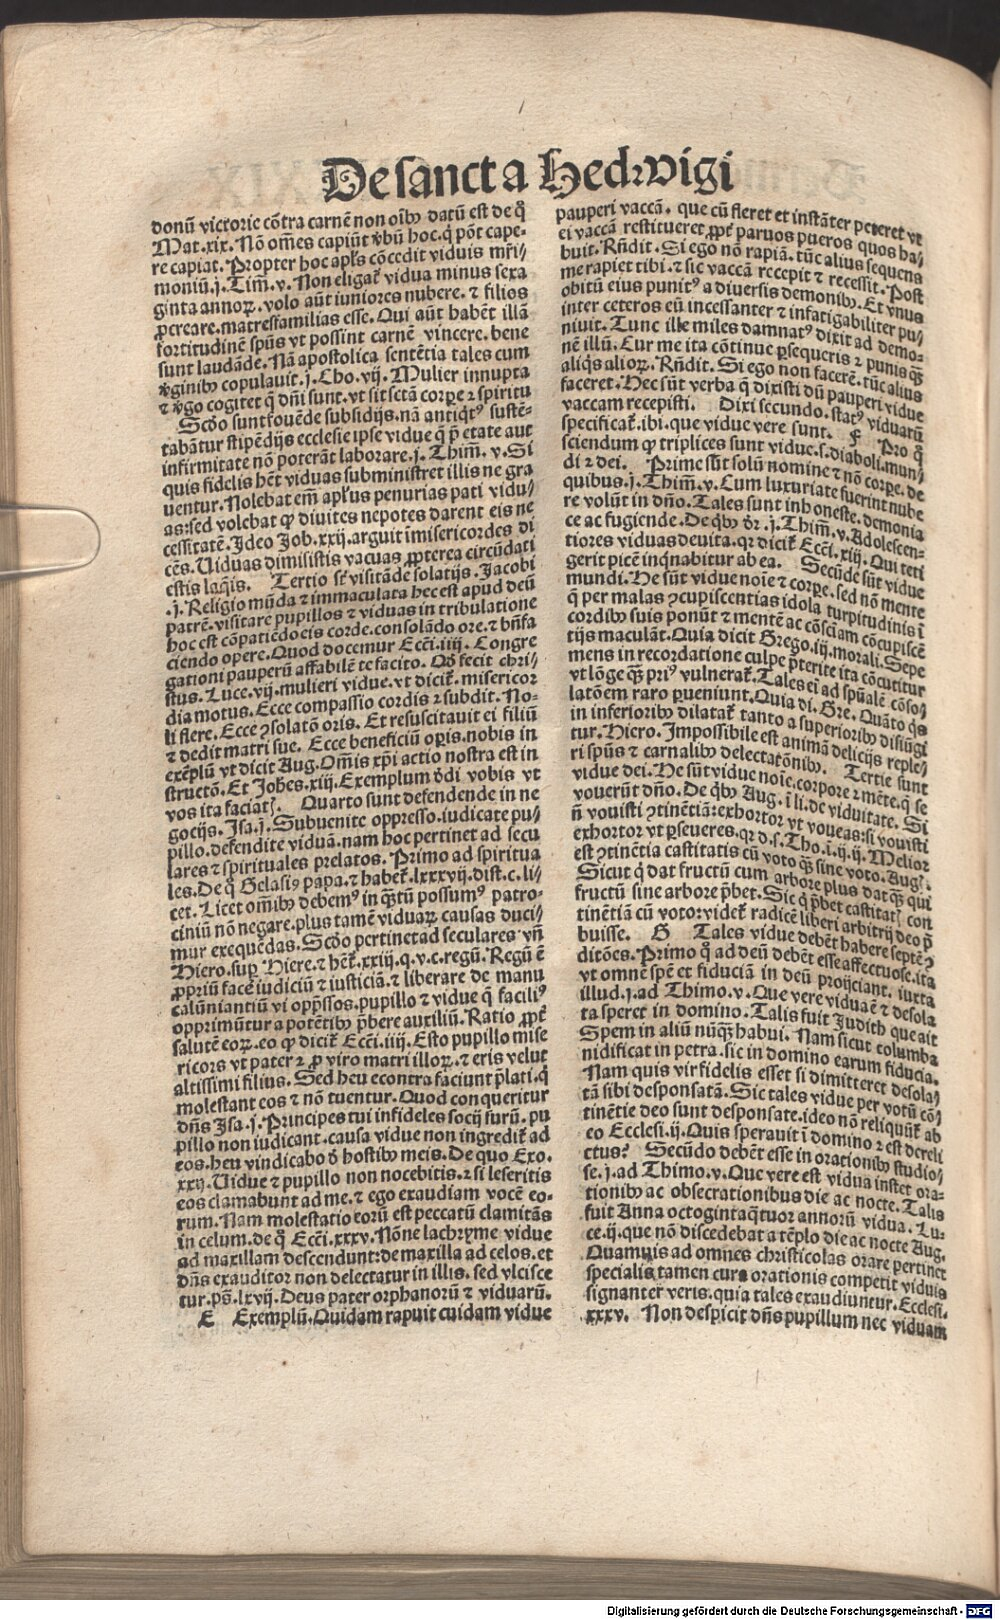 De sancta Hedwigi
donū victorie cōtra carnē non oībꝫ datū est de qͦ
Mat. xix. Nō om̄es capiūt v̓bū hoc. q̄ pōt cape-
re capiat. Propter hoc apl̄s cōcedit viduis mr̄i-
moniū. j. Tim̄. v. Non eligat᷑ vidua minus sexa
ginta annoꝝ. volo aūt iuniores nubere. ⁊ filios
ꝓcreare. matresfamilias esse. Qui aūt habēt illā
fortitudinē spūs vt possint carnē vincere. bene
sunt laudāde. Nā apostolica sentētia tales cum
v̓ginibꝫ copulauit. j. Cho. vij. Mulier innupta
⁊ v̓go cogitet q̄ dn̄i sunt. vt sit sctā corꝑe ⁊ spiritu
Scd̓o sunt fouēde subsidijs. nā antiqͥtꝰ sustē-
tabātur stipēdijs ecclesie ipse vidue q̄ p̄ etate aut
infirmitate nō poterāt laborare. j. Thim̄. v. Si
quis fidelis hēt viduas subministret illis ne gra
uentur. Nolebat em̄ apl̄us penurias pati vidu-
as: sed volebat ꝙ diuites nepotes darent eis ne
cessitatē. Ideo Job. xxij. arguit imisericordes di
cēs. Uiduas dimilistis vacuas ꝓpterea circūdati
estis laq̄is. Tertio sr̄ visitāde solatijs. Jacobi
.j. Religio mūda ⁊ immaculata hec est apud deū
patrē. visitare pupillos ⁊ viduas in tribulatione
hoc est cōpatiēdo eis corde. consolādo ore. ⁊ bn̄fa
ciendo opere. Quod docemur Ecc̄i. iiij. Congre
gationi pauperū affabilē te facito. Qd̓ fecit chri-
stus. Luce. vij. mulieri vidue. vt dicit᷑. misericor
dia motus. Ecce compassio cordis ⁊ subdit. No-
li flere. Ecce ꝯsolatō oris. Et resuscitauit ei filiū
⁊ dedit matri sue. Ecce beneficiū oꝑis. nobis in
exēplū vt dicit Aug. Om̄is xp̄i actio nostra est in
structō. Et Joh̄es. xiij. Exemplum d̓di vobis vt
vos ita faciatꝭ. Quarto sunt defendende in ne
gocijs. Isa. j. Subuenite oppresso. iudicate pu-
pillo. defendite viduā. nam hoc pertinet ad secu
lares ⁊ spirituales prelatos. Primo ad spiritua
les. De q̄ Gelasiꝰ papa. ⁊ habet᷑. lxxxvij. dist. c. li-
cet. Licet om̄ibꝫ debemꝰ in qͣꝫtū possumꝰ patro-
ciniū nō negare. plus tamē viduaꝝ causas duci-
mur exequēdas. Scd̓o pertinet ad seculares vn̄
Hiero. suꝑ Hiere. ⁊ hēt᷑. xxiij. q. v. c. regū. Regū ē
ꝓpriū facē iudiciū ⁊ iusticiā. ⁊ liberare de manu
calūniantiū vi opp̄ssos. pupillo ⁊ vidue q̄ faciliꝰ
opprimūtur a potētibꝫ p̄bere auxiliū. Ratio ꝓpt̓
salutē eoꝝ. eo ꝙ dicit᷑ Ecc̄i. iiij. Esto pupillo mise
ricors vt pater ⁊ ꝓ viro matri illoꝝ. ⁊ eris velut
altissimi filius. Sed heu econtra faciunt p̄lati. q̄
molestant eos ⁊ nō tuentur. Quod conqueritur
dn̄s Isa. j. Principes tui infideles socij furū. pu
pillo non iudicant. causa vidue non ingredit᷑ ad
eos. heu vindicabo d̓ hostibꝫ meis. De quo Exo.
xxij. Uidue ⁊ pupillo non nocebitis. ⁊ si leseritis
eos clamabunt ad me. ⁊ ego exaudiam vocē eo-
rum. Nam molestatio eorū est peccatū clamitās
in celum. de q̄ Ecc̄i. xxxv. Nōne lachryme vidue
ad maxillam descendunt: de maxilla ad celos. et
dn̄s exauditor non delectatur in illis. sed vlcisce
tur. ps̄. lxvij. Deus pater orphanorū ⁊ viduarū.
E Exemplū. Quidam rapuit cuidam vidue
pauperi vaccā. que cū fleret et instāter peteret vt
ei vaccā restitueret ꝓpt̓ paruos pueros quos ha-
buit. Rn̄dit. Si ego nō rapiā. tūc alius sequens
me rapiet tibi. ⁊ sic vaccā recepit ⁊ recessit. Post
obitū eius punitꝰ a diuersis demonibꝫ. Et vnus
inter ceteros eū incessanter ⁊ infatigabiliter pu-
niuit. Tunc ille miles damnatꝰ dixit ad demo-
nē illū. Cur me ita cōtinue ꝑsequeris ⁊ punis qͣꝫ
aliqͥs alioꝝ. Rn̄dit. Si ego non facerē. tūc alius
faceret. Hec sūt verba q̄ dixisti dū pauperi vidue
vaccam recepisti. Dixi secundo. statꝰ viduarū
specificat᷑. ibi. que vidue vere sunt. F Pro qͦ
sciendum ꝙ triplices sunt vidue. s. diaboli. mun-
di ⁊ dei. Prime sūt solū nomine ⁊ nō corꝑe. de
quibus. j. Thim̄. v. Cum luxuriate fuerint nube
re volūt in dn̄o. Tales sunt inhoneste. demonia
ce ac fugiende. De qͥbꝫ dr̄. j. Thim̄. v. Adolescen-
tiores viduas deuita. qr dicit᷑ Ecc̄i. xiij. Qui teti
gerit picē inqͥnabitur ab ea. Secūde sūt vidue
mundi. He sūt vidue noīe ⁊ corꝑe. sed nō mente
q̄ per malas ꝯcupiscentias idola turpitudinis ī
cordibꝫ suis ponūt ⁊ mentē ac cōsciam cōcupiscē
tijs maculāt. Quia dicit Grego. iij. morali. Sepe
mens in recordatione culpe p̄terite ita cōcutitur
vt lōge qͣꝫ priꝰ vulnerat᷑. Tales ei ad spūalē cōso-
latōem raro ꝑueniunt. Quia di. Gre. Quāto qͥs
in inferioribꝫ dilatat᷑ tanto a superioribꝫ disiūgi
tur. Hiero. Impossibile est animā delicijs reple-
ri spūs ⁊ carnalibꝫ delectatōnibꝫ. Tertie sunt
vidue dei. He sūt vidue noīe. corpore ⁊ mēte. q̄ se
vouerūt dn̄o. De qͥbꝫ Aug. ī li. de viduitate. Si
n̄ vouisti ꝯtinētiā: exhortor vt voueas: si vouisti
exhortor vt ꝑseueres. qr d. s. Tho. i. ij. ij. Melior
est ꝯtinētia castitatis cū voto qͣꝫ sine voto. Augꝰ.
Sicut q̄ dat fructū cum arbore plus dat qͣꝫ qui
fructū sine arbore p̄bet. Sic q̄ p̄bet castitatꝭ con
tinētiā cū voto: videt᷑ radicē liberi arbitrij deo p̄
buisse. G Tales vidue debēt habere septē ꝯ
ditōes. Primo qͦ ad deū debēt esse affectuose. ita
vt omnē spē et fiduciā in deū proijciant. iuxta
illud. j. ad Thimo. v. Que vere vidua ē ⁊ desola
ta speret in domino. Talis fuit Judith que ait
Spem in aliū nūqͣꝫ habui. Nam sicut columba
nidificat in petra. sic in domino earum fiducia.
Nam quis vir fidelis esset si dimitteret desola-
tā sibi desponsatā. Sic tales vidue per votū cō-
tinētie deo sunt desponsate. ideo nō reliquit᷑ ab
eo Ecclesi. ij. Quis sperauit ī domino ⁊ est dereli
ctus? Secūdo debēt esse in orationibꝫ studio-
se. j. ad Thimo. v. Que vere est vidua instet ora-
tionibꝫ ac obsecrationibus die ac nocte. Talis
fuit Anna octogintaqͣtuor annorū vidua. Lu-
ce. ij. que nō discedebat a tēplo die ac nocte Aug.
Quamuis ad omnes christicolas orare pertinet
specialis tamen cura orationis competit viduis
signanter veris. quia tales exaudiuntur. Ecclesi.
xxxv. Non despicit dn̄s pupillum nec viduam
Digitalisierung gefördert durch die Deutsche Forschungsgemeinschaft - DFG